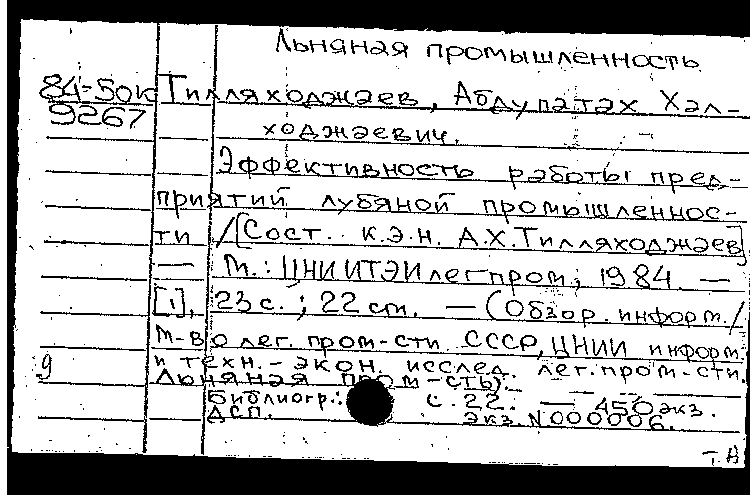 Льняная промышленность
84-50к Тилляходжаев, Абдупатах Хал-
9267 ходжаевич.
Эффективность работы пред-
приятий лубяной промышленнос-
ти /[Сост. к.э.н. А.Х.Тилляходжаев]
— М.: ЦНИИТЭИлегпром, 1984. —
[1], 23 с.; 22 см. — (Обзор. информ./
М-во лег. пром-сти СССР, ЦНИИ информ.
9 и техн.-экон. исслед. лег.пром-сти.
Льняная пром-сть).
Библиогр.: с. 22. — 450 экз.
ДСП. Экз. N 000006.
т.А